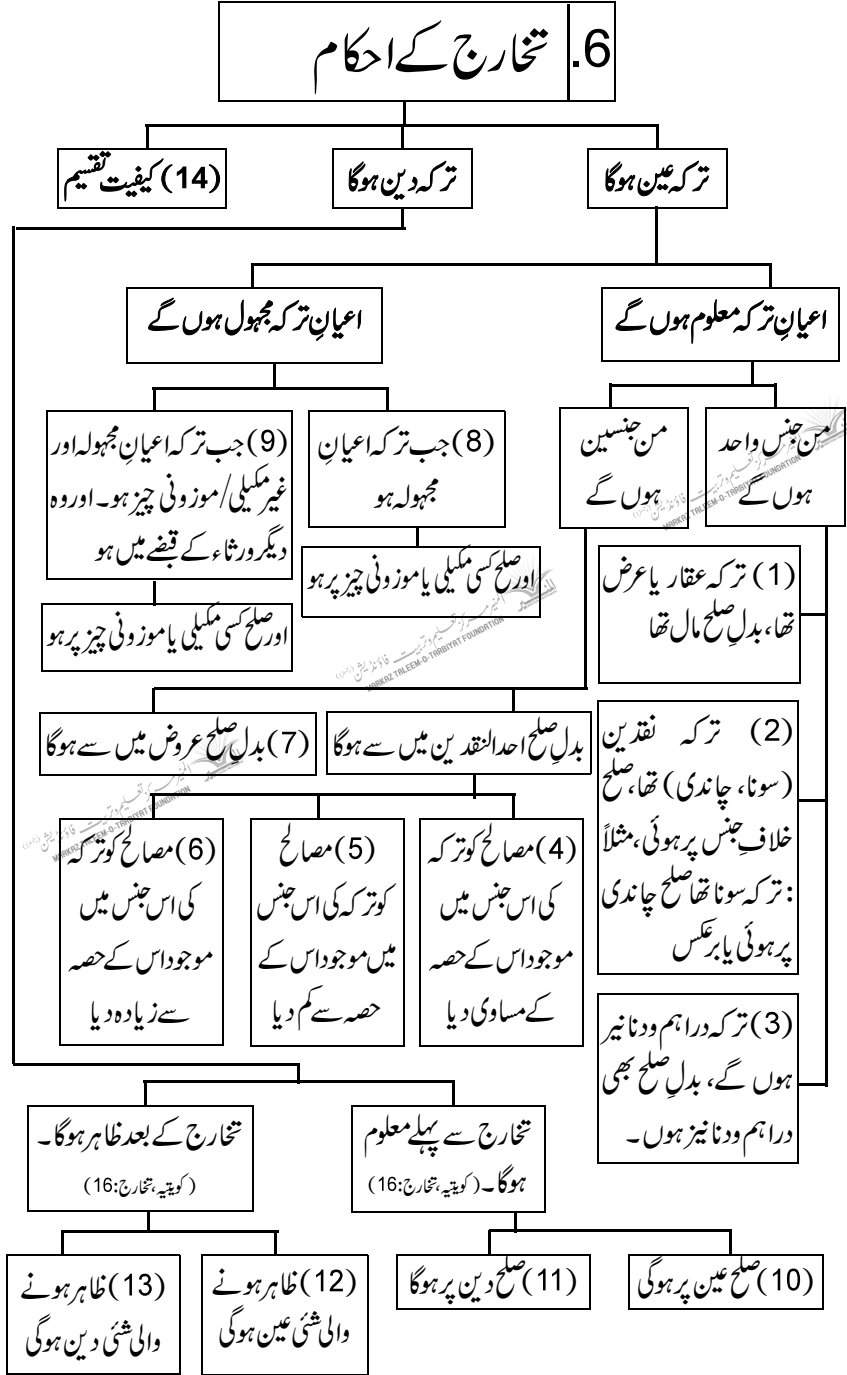 6. تخارج کے احکام
ترکہ عین ہوگا
ترکہ دین ہوگا
(14) کیفیت تقسیم
اعیانِ ترکہ معلوم ہوں گے
اعیانِ ترکہ مجہول ہوں گے
من جنس واحد
ہوں گے
من جنسین
ہوں گے
(8) جب ترکہ اعیانِ
مجہولہ ہو
(9) جب ترکہ اعیانِ مجہولہ اور
غیر مکیلی/موزونی چیز ہو۔ اور وہ
دیگر ورثاء کے قبضے میں ہو
اور صلح کسی مکیلی یا موزونی چیز پر ہو
اور صلح کسی مکیلی یا موزونی چیز پر ہو
(1) ترکہ عقار یا عرض
تھا، بدلِ صلح مال تھا
(2) ترکہ نقدین
(سونا، چاندی) تھا، صلح
خلافِ جنس پر ہوئی، مثلاً
: ترکہ سونا تھا صلح چاندی
پر ہوئی یا برعکس
(3) ترکہ دراہم ودنانیر
ہوں گے، بدلِ صلح بھی
دراہم ودنانیز ہوں۔
بدلِ صلح احد النقدین میں سے ہوگا
(7) بدلِ صلح عروض میں سے ہوگا
(4) مصالح کو ترکہ
کی اس جنس میں
موجود اس کے حصہ
کے مساوی دیا
(5) مصالح
کو ترکہ کی اس جنس
میں موجود اس کے
حصہ سے کم دیا
(6) مصالح کو ترکہ
کی اس جنس میں
موجود اس کے حصہ
سے زیادہ دیا
تخارج سے پہلے معلوم
ہوگا۔ (کویتیہ، تخارج: 16)
تخارج کے بعد ظاہر ہوگا۔
(کویتیہ، تخارج: 16)
(10) صلح عین پر ہوگی
(11) صلح دین پر ہوگا
(12) ظاہر ہونے
والی شئی عین ہوگی
(13) ظاہر ہونے
والی شئی دین ہوگی
MARKAZ TALEEM-O-TARBIYAT FOUNDATION
MARKAZ TALEEM-O-TARBIYAT FOUNDATION
MARKAZ TALEEM-O-TARBIYAT FOUNDATION